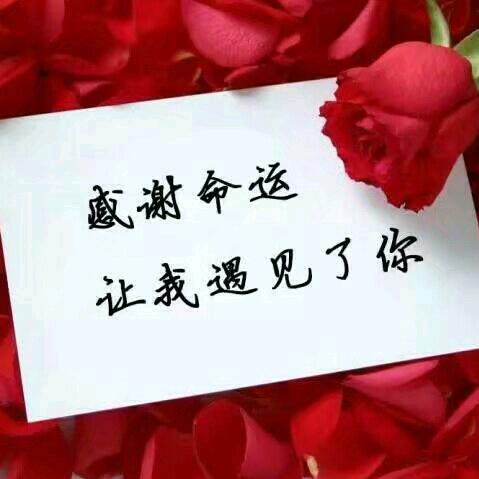 感谢命运
让我遇见了你